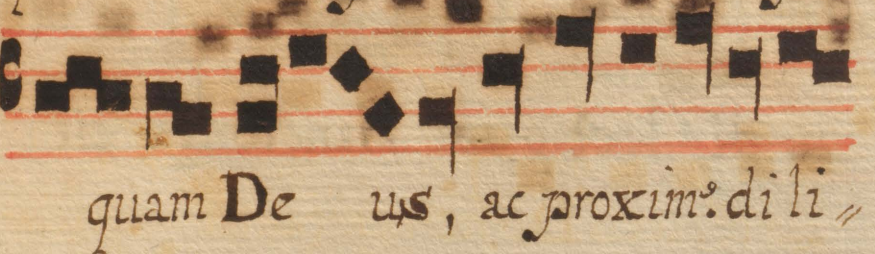 quam De us, ac proxim⁹. di li〃